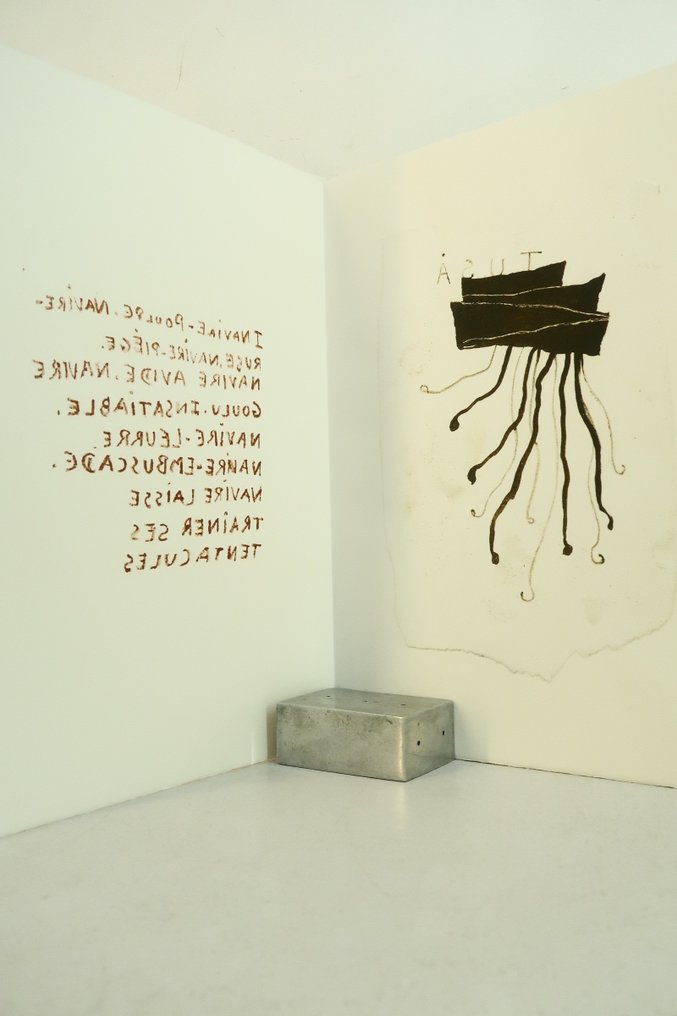 INAVIRE-POULPE. NAVIRE-
RUSE. NAVIRE-PIÈGE.
NAVIRE AVIDE. NAVIRE
GOULU. INSATIABLE.
NAVIRE-LEURRE
NAVIRE-EMBUSCADE.
NAVIRE LAISSE
TRAÎNER SES
TENTACULES